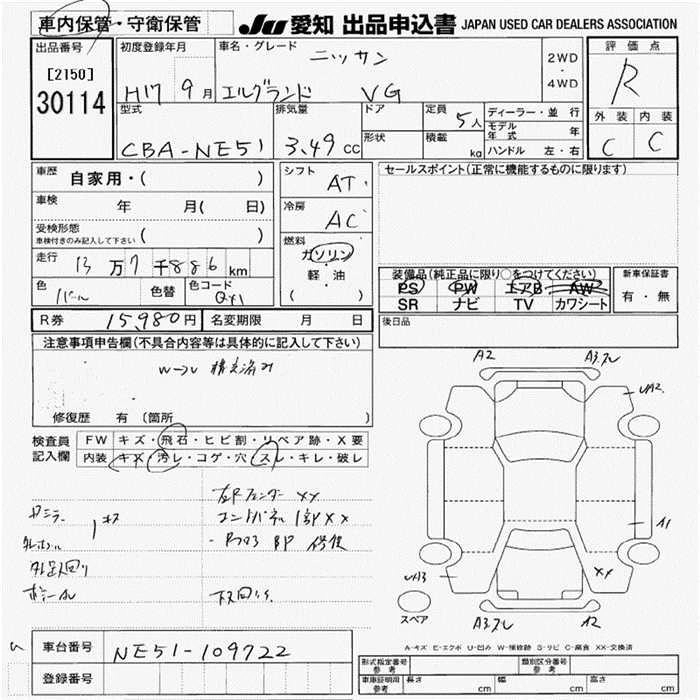 車内保管・守衛保管
JU 愛知 出品申込書 JAPAN USED CAR DEALERS ASSOCIATION
出品番号
[2150]
30114
初度登録年月
H17 9月
車名・グレード
ニッサン
エルグランド VG
2WD
・
4WD
評価点
R
外装 内装
C C
型式
CBA-NE51
排気量
3.49cc
ドア
形状
定員
5人
積載
kg
ディーラー・並行
モデル年式 年
ハンドル 左・右
車歴 自家用・( )
車検 年 月( 日)
受検形態
車検付きのみ記入して下さい ( )
走行 13万7千886km
色 パール 色替 色コード QX1
シフト AT
冷房 AC
燃料
ガソリン
軽・油
( )
セールスポイント(正常に機能するものに限ります)
装備品(純正品に限り○をつけてください)
PS PW エアB AW
SR ナビ TV カワシート
新車保証書
有・無
後日品
R券 15,980円 名変期限 月 日
注意事項申告欄(不具合内容等は具体的に記入して下さい)
修復歴 有 (箇所
検査員
記入欄
FW キズ・飛石・ヒビ割・リペア跡・X要
内装 キズ・汚レ・コゲ・穴・スレ・キレ・破レ
A2
UA2
A1
XX
A2
UA3
スペア
A-キズ E-エクボ U-凹み W-補修跡 S-サビ C-腐食 XX-交換済
車台番号 NE51-109722
登録番号
形式指定番号
参考
類別区分番号
参考
車庫証明用
参考
長さ cm 幅 cm 高さ cm